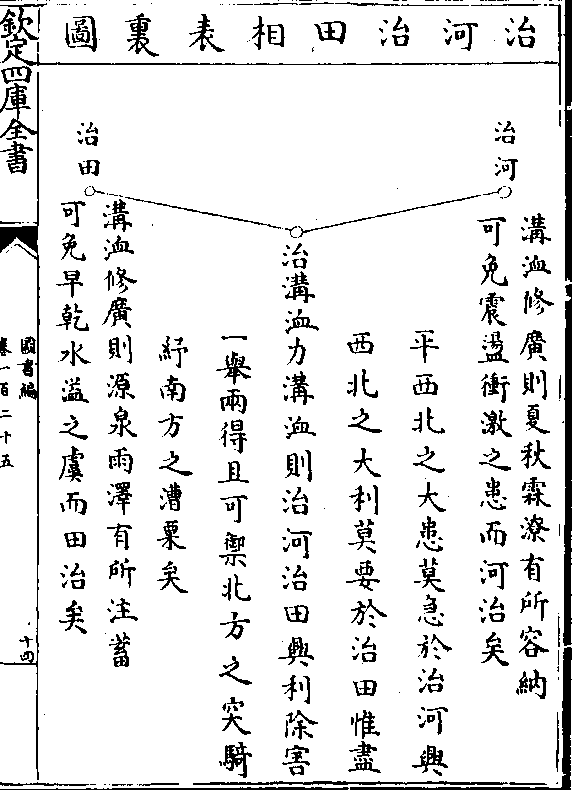 治河治田相表裏圖
治河
溝洫修廣則夏秋霖潦有所容納
可免震盪衝激之患而河治矣
平西北之大患莫急於治河興
西北之大利莫要於治田惟盡
治溝洫力溝洫則治河治田興利除害
一舉兩得且可禦北方之突騎
紓南方之漕粟矣
治田
溝洫修廣則源泉雨澤有所注蓄
可免旱乾水溢之虞而田治矣
欽定四庫全書
圖書編
卷一百二十五
十四